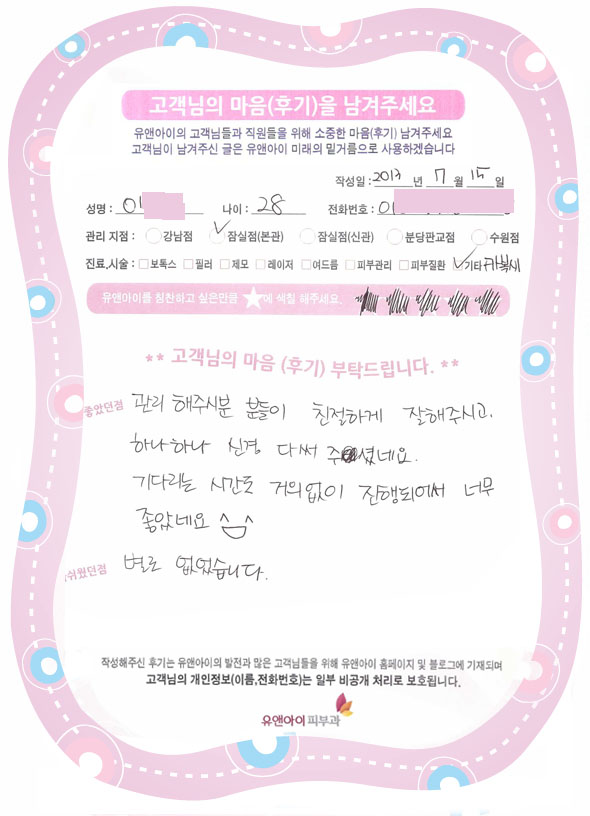 고객님의 마음(후기)을 남겨주세요
유앤아이의 고객님들과 직원들을 위해 소중한 마음(후기) 남겨주세요
고객님이 남겨주신 글은 유앤아이 미래의 밑거름으로 사용하겠습니다
작성일 : 2017 년 7 월 15 일
성명 : 이 나이 : 28 전화번호 : 01
관리 지점 : 강남점 잠실점(본관) 잠실점(신관) 분당판교점 수원점
진료,시술 : 보톡스 필러 제모 레이저 여드름 피부관리 피부질환 기타
유앤아이를 칭찬하고 싶은만큼 ★에 색칠 해주세요.
** 고객님의 마음 (후기) 부탁드립니다. **
좋았던점 관리 해주시분 분들이 친절하게 잘해주시고,
하나하나 신경 다써 주셨네요.
기다리는 시간도 거의없이 진행되어서 너무
좋았네요 ^ㅂ^
쉬웠던점 별로 없었습니다.
작성해주신 후기는 유앤아이의 발전과 많은 고객님들을 위해 유앤아이 홈페이지 및 블로그에 기재되며
고객님의 개인정보(이름,전화번호)는 일부 비공개 처리로 보호됩니다.
유앤아이 피부과